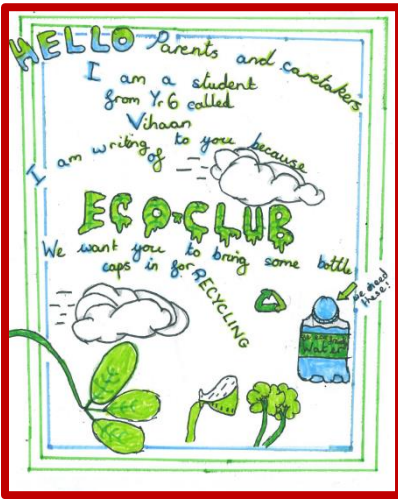 HELLO Parents and caretakers
I am a student
from Yr 6 called
Vihaan
I am writing to you because
of
ECO-CLUB
We want you to bring some bottle
caps in for RECYCLING
We need
these!
Water